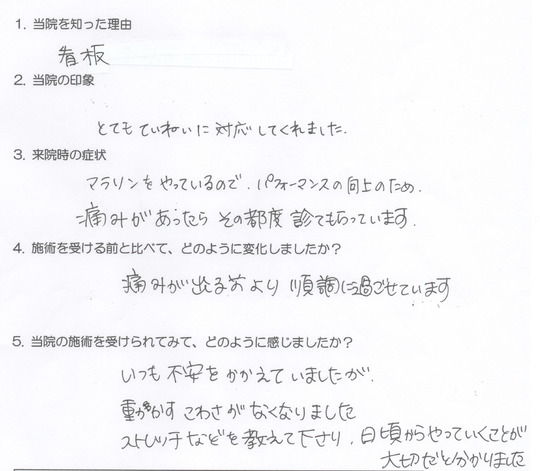 1. 当院を知った理由
看板
2. 当院の印象
とても ていねいに 対応してくれました.
3. 来院時の症状
マラソンを やっているので. パフォーマンスの 向上のため.
痛みがあったら その都度 診てもらっています.
4. 施術を受ける前と比べて、どのように変化しましたか？
痛みが 出る前より 順調に過ごせています
5. 当院の施術を受けられてみて、どのように感じましたか？
いつも 不安を かかえて いましたが.
動かす こわさが なくなりました
ストレッチ などを 教えて下さり. 日頃からやっていくことが
大切だと分かりました